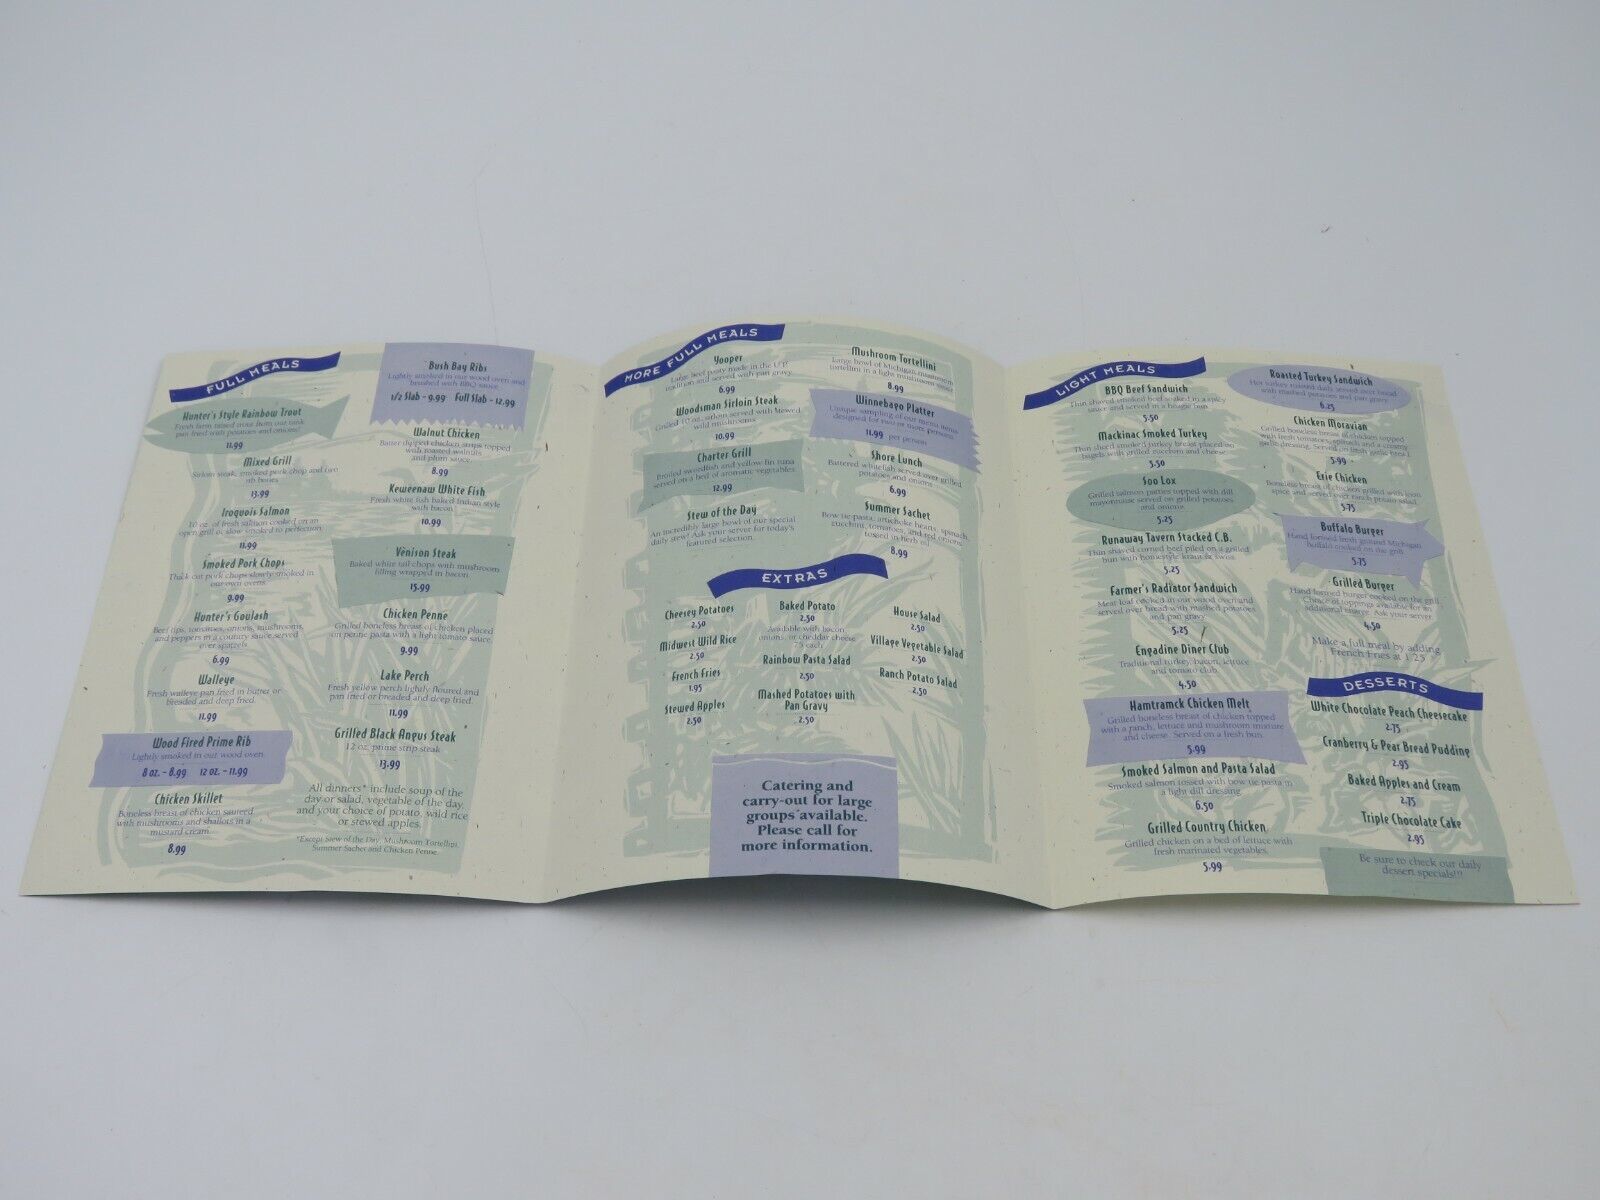 FULL MEALS
Hunter's Style Rainbow Trout
Fresh farm raised trout from our tank
pan fried with potatoes and onions
11.99
Mixed Grill
Sirloin steak, smoked pork chop and two
rib bones
13.99
Iroquois Salmon
10 oz. of fresh salmon cooked on an
open grill or slow smoked to perfection
11.99
Smoked Pork Chops
Thick cut pork chops slowly smoked in
our own ovens
9.99
Hunter's Goulash
Beef tips, tomatoes, onions, mushrooms,
and peppers in a country sauce served
over spatzels
6.99
Walleye
Fresh walleye pan fried in butter or
breaded and deep fried.
11.99
Wood Fired Prime Rib
Lightly smoked in our wood oven
8 oz. - 8.99 12 oz. - 11.99
Chicken Skillet
Boneless breast of chicken sauteed
with mushrooms and shallots in a
mustard cream
8.99
Bush Bay Ribs
Lightly smoked in our wood oven and
brushed with BBQ sauce
1/2 Slab - 9.99 Full Slab - 12.99
Walnut Chicken
Batter dipped chicken strips topped
with roasted walnuts
and plum sauce
8.99
Keweenaw White Fish
Fresh white fish baked Indian style
with bacon
10.99
Venison Steak
Baked white tail chops with mushroom
filling wrapped in bacon
15.99
Chicken Penne
Grilled boneless breast of chicken placed
on penne pasta with a light tomato sauce
9.99
Lake Perch
Fresh yellow perch lightly floured and
pan fried or breaded and deep fried.
11.99
Grilled Black Angus Steak
12 oz. prime strip steak
13.99
All dinners* include soup of the
day or salad, vegetable of the day,
and your choice of potato, wild rice
or stewed apples.
*Except Stew of the Day, Mushroom Tortellini,
Summer Sachet and Chicken Penne.
MORE FULL MEALS
Yooper
Large beef pasty made in the U.P.
tradition and served with pan gravy
6.99
Woodsman Sirloin Steak
Grilled 10 oz. sirloin served with stewed
wild mushrooms
10.99
Charter Grill
Broiled swordfish and yellow fin tuna
served on a bed of aromatic vegetables
12.99
Stew of the Day
An incredibly large bowl of our special
daily stew! Ask your server for today's
featured selection.
Mushroom Tortellini
Large bowl of Michigan mushroom
tortellini in a light mushroom sauce
8.99
Winnebago Platter
Unique sampling of our menu items
designed for two or more persons
11.99 per person
Shore Lunch
Battered whitefish served over grilled
potatoes and onions
6.99
Summer Sachet
Bow tie pasta, artichoke hearts, spinach,
zucchini, tomatoes, and red onions
tossed in herb oil
8.99
EXTRAS
Cheesey Potatoes
2.50
Midwest Wild Rice
2.50
French Fries
1.95
Stewed Apples
2.50
Baked Potato
2.50
Available with bacon,
onions, or cheddar cheese
.75 each
Rainbow Pasta Salad
2.50
Mashed Potatoes with
Pan Gravy
2.50
House Salad
2.50
Village Vegetable Salad
2.50
Ranch Potato Salad
2.50
Catering and
carry-out for large
groups available.
Please call for
more information.
LIGHT MEALS
BBQ Beef Sandwich
Thin shaved smoked beef soaked in a spicy
sauce and served in a hoagie bun
5.50
Mackinac Smoked Turkey
Thin sliced smoked turkey breast placed on
bagels with grilled zucchini and cheese
5.50
Soo Lox
Grilled salmon patties topped with dill
mayonnaise served on grilled potatoes
and onions
5.25
Runaway Tavern Stacked C.B.
Thin shaved corned beef piled on a grilled
bun with homestyle kraut & swiss
5.25
Farmer's Radiator Sandwich
Meat loaf cooked in our wood oven and
served over bread with mashed potatoes
and pan gravy
5.25
Engadine Diner Club
Traditional turkey, bacon, lettuce
and tomato club
4.50
Hamtramck Chicken Melt
Grilled boneless breast of chicken topped
with a ranch, lettuce and mushroom mixture
and cheese. Served on a fresh bun.
5.99
Smoked Salmon and Pasta Salad
Smoked salmon tossed with bow tie pasta in
a light dill dressing
6.50
Grilled Country Chicken
Grilled chicken on a bed of lettuce with
fresh marinated vegetables.
5.99
Roasted Turkey Sandwich
Hot turkey roasted daily served over bread
with mashed potatoes and pan gravy
6.25
Chicken Moravian
Grilled boneless breast of chicken topped
with fresh tomatoes, spinach and a creamy
garlic dressing. Served on fresh garlic bread.
5.99
Erie Chicken
Boneless breast of chicken grilled with
spice and served over ranch potato salad
5.75
Buffalo Burger
Hand formed fresh ground Michigan
buffalo cooked on the grill
5.75
Grilled Burger
Hand formed burger cooked on the grill.
Choice of toppings available for an
additional charge. Ask your server
4.50
Make a full meal by adding
French Fries at 1.25
DESSERTS
White Chocolate Peach Cheesecake
2.75
Cranberry & Pear Bread Pudding
2.95
Baked Apples and Cream
2.75
Triple Chocolate Cake
2.95
Be sure to check our daily
dessert specials!!!